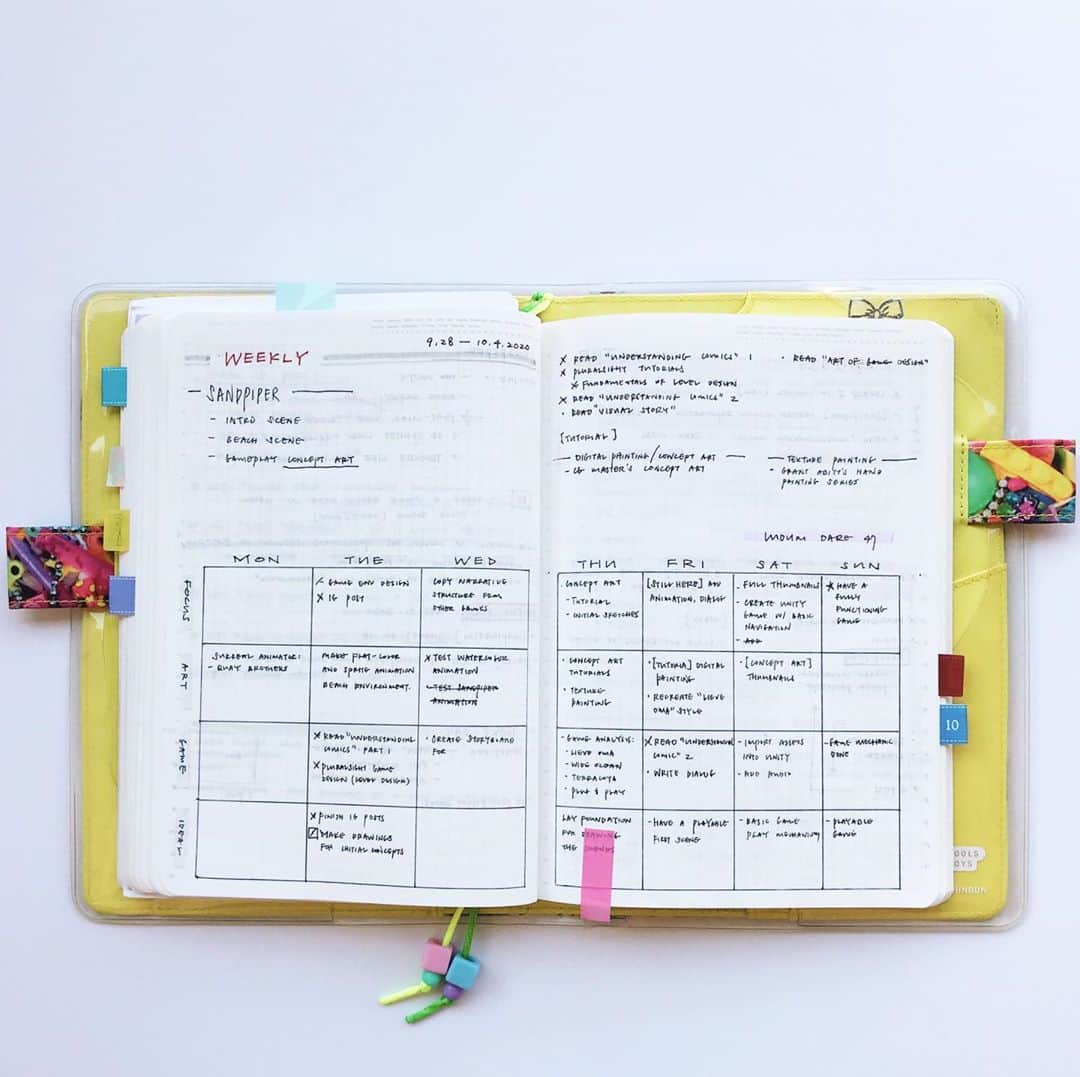 WEEKLY
9.28 — 10.4.2020
SANDPIPER
- INTRO SCENE
- BEACH SCENE
- GAMEPLAY CONCEPT ART
MON TUE WED
FOCUS
GAME ENV DESIGN
X IG POST
COPY NARRATIVE
STRUCTURE FROM
OTHER
ART
SURREAL ANIMATOR:
- QUAY BROTHERS
MAKE FLAT-COLOR
AND SPRITE ANIMATION
BEACH ENVIRONMENT.
X TEST WATERCOLOR
ANIMATION
TEST SANDPIPER
ANIMATION
GAME
X READ "UNDERSTANDING
COMICS" PART 1
X PLURALSIGHT GAME
DESIGN (LEVEL DESIGN)
· CREATE STORYBOARD
FOR
IDEA
X FINISH IG POSTS
MAKE DRAWINGS
FOR INITIAL CONCEPTS
X READ "UNDERSTANDING COMICS" 1
X PLURALSIGHT TUTORIALS
X FUNDAMENTALS OF LEVEL DESIGN
X READ "UNDERSTANDING COMICS" 2
· READ "VISUAL STORY"
· READ "ART OF GAME DESIGN"
[TUTORIAL]
— DIGITAL PAINTING/CONCEPT ART —
- CG MASTER'S CONCEPT ART
— TEXTURE PAINTING —
- GRANT ABITT'S HAND
PAINTING SERIES
DARE 47
THU FRI SAT SUN
CONCEPT ART
- TUTORIAL
- INITIAL SKETCHES
[STILL HERE] ADD
ANIMATION, DIALOG
- FULL THUMBNAILS
- CREATE UNITY
GAME W/ BASIC
NAVIGATION
- ADD
X HAVE A
FULLY
FUNCTIONING
GAME
· CONCEPT ART
TUTORIALS
· TEXTURE
PAINTING
· [TUTORIAL] DIGITAL
PAINTING
· RECREATE "LIEVE
OMA" STYLE
· [CONCEPT ART]
THUMBNAILS
- GAME ANALYSIS:
· LIEVE OMA
- WIDE OCEAN
- TERRACOTA
· PLUG & PLAY
X READ "UNDERSTANDING
COMIC" 2
· WRITE DIALOG
- IMPORT ASSETS
INTO UNITY
- ADD AUDIO
- GAME MECHANIC
DONE
LAY FOUNDATION
FOR DRAWING
THE SCENES
- HAVE A PLAYABLE
FIRST SCENE
- BASIC GAME
PLAY MECHANISM
- PLAYABLE
GAME
10
OOLS
OYS